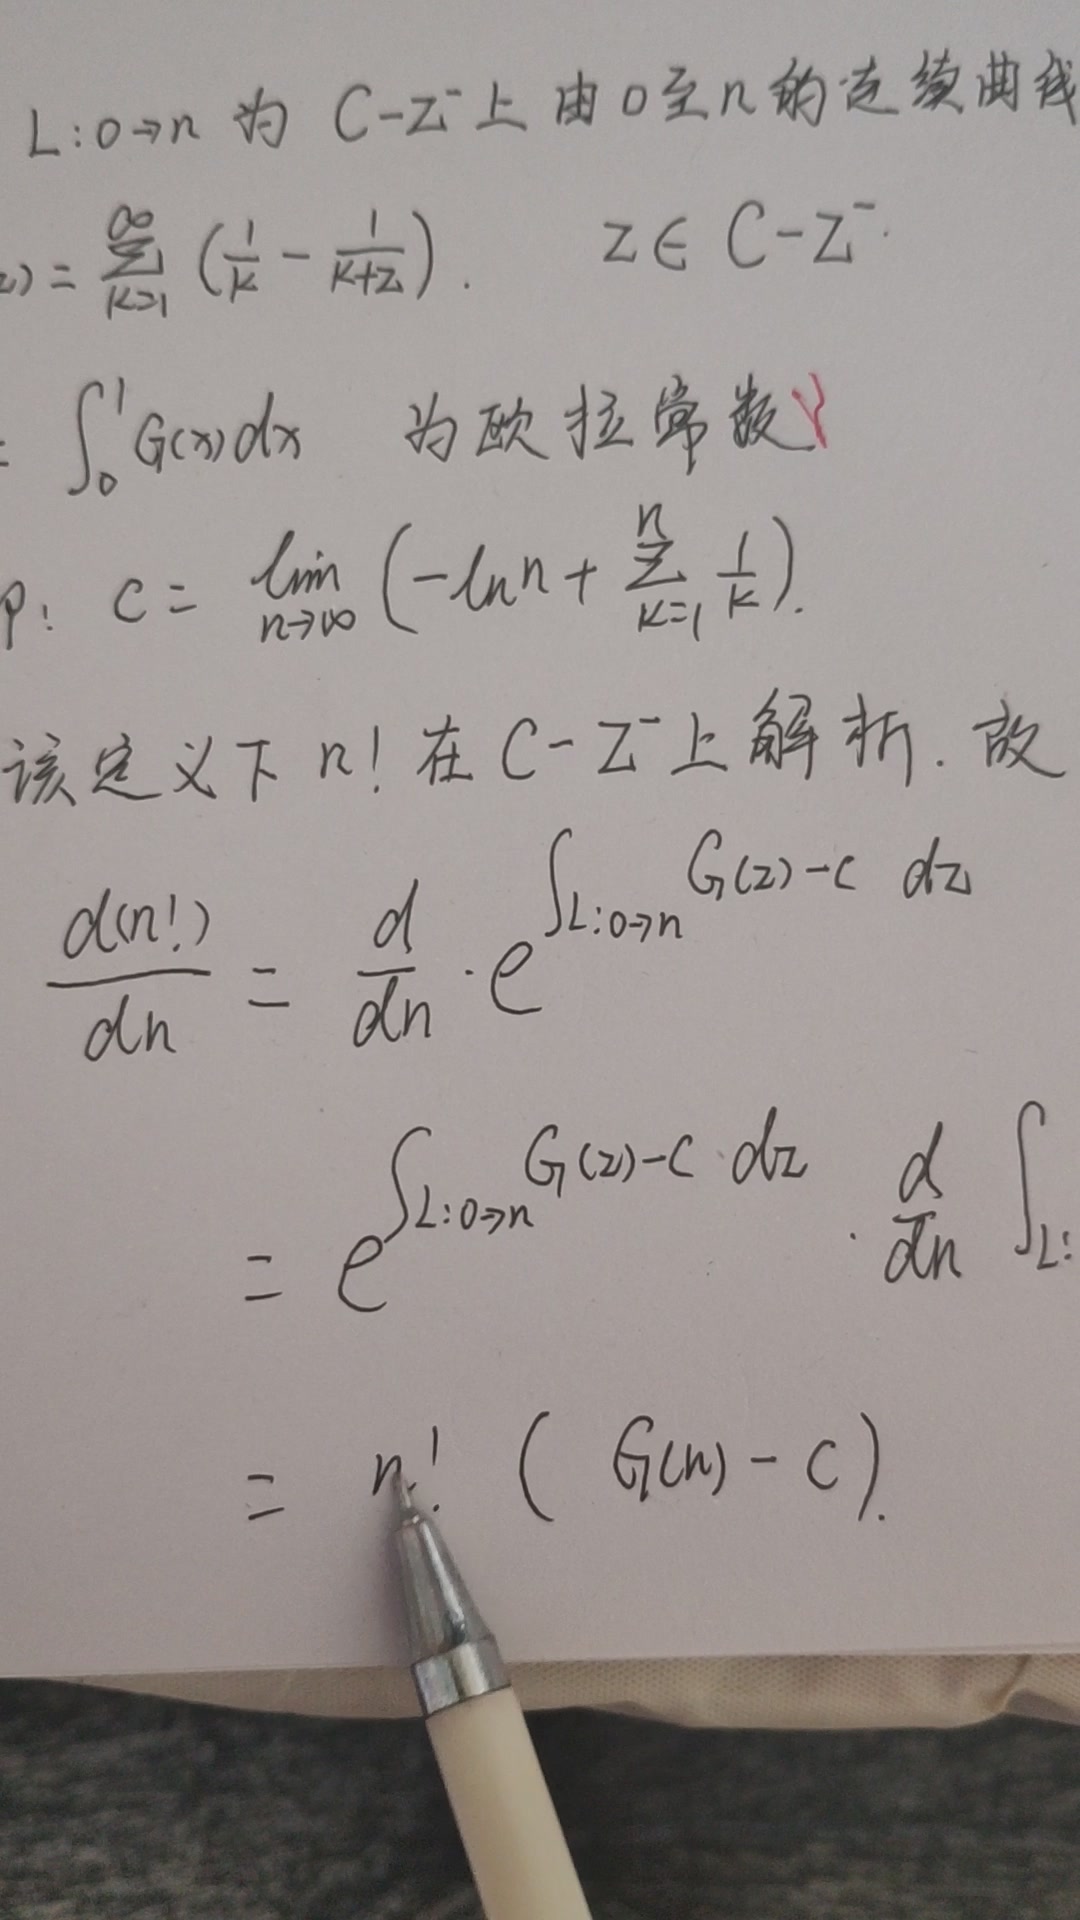 L:0→n 为 C-Z⁻上 由0至n的连续曲线
z) = ∑_{k=1}^{∞} (1/k - 1/(k+z)). z∈ C-Z⁻.
= ∫₀¹ G(x)dx 为欧拉常数γ
: C = lim_{n→∞} (-ln n + ∑_{k=1}^{n} 1/k).
该定义下 n! 在 C-Z⁻上解析. 故
d(n!)/dn = d/dn · e^{∫_{L:0→n} G(z)-C dz}
= e^{∫_{L:0→n} G(z)-C dz} · d/dn ∫_{L:
= n! ( G(n) - C ).